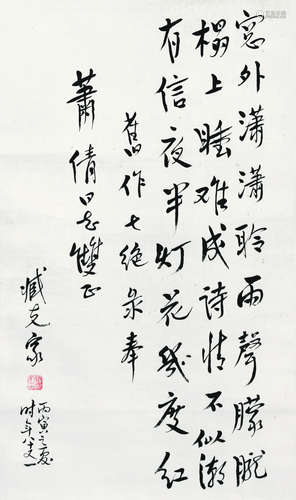 窓外潇潇聆雨聲朦朧
榻上睡难成诗情不似潮
有信夜半灯花幾度红
舊作七绝录奉
蕭倩同志雙正
臧克家
丙寅之夏
时年八十又一